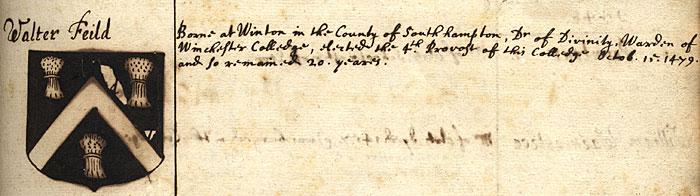 Walter Feild
Borne at Winton in the County of Southhampton, Dr of Divinity, Warden of
Winchester Colledge, elected the 4th Provost of this Colledge Octob. 15. 1479.
and so remained 20. yeares.